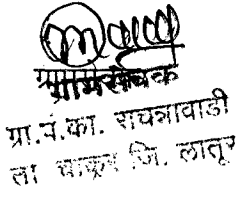 ग्रामसेवक
ग्रा.पं.का. राचन्नावाडी
ता चाकूर जि. लातूर